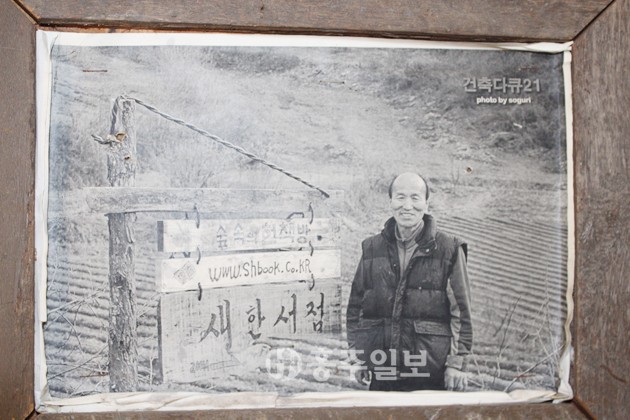 건축다큐21
photo by soguri
숲속의 헌책방
www.shbook.co.KR
새한서점
홍주일보